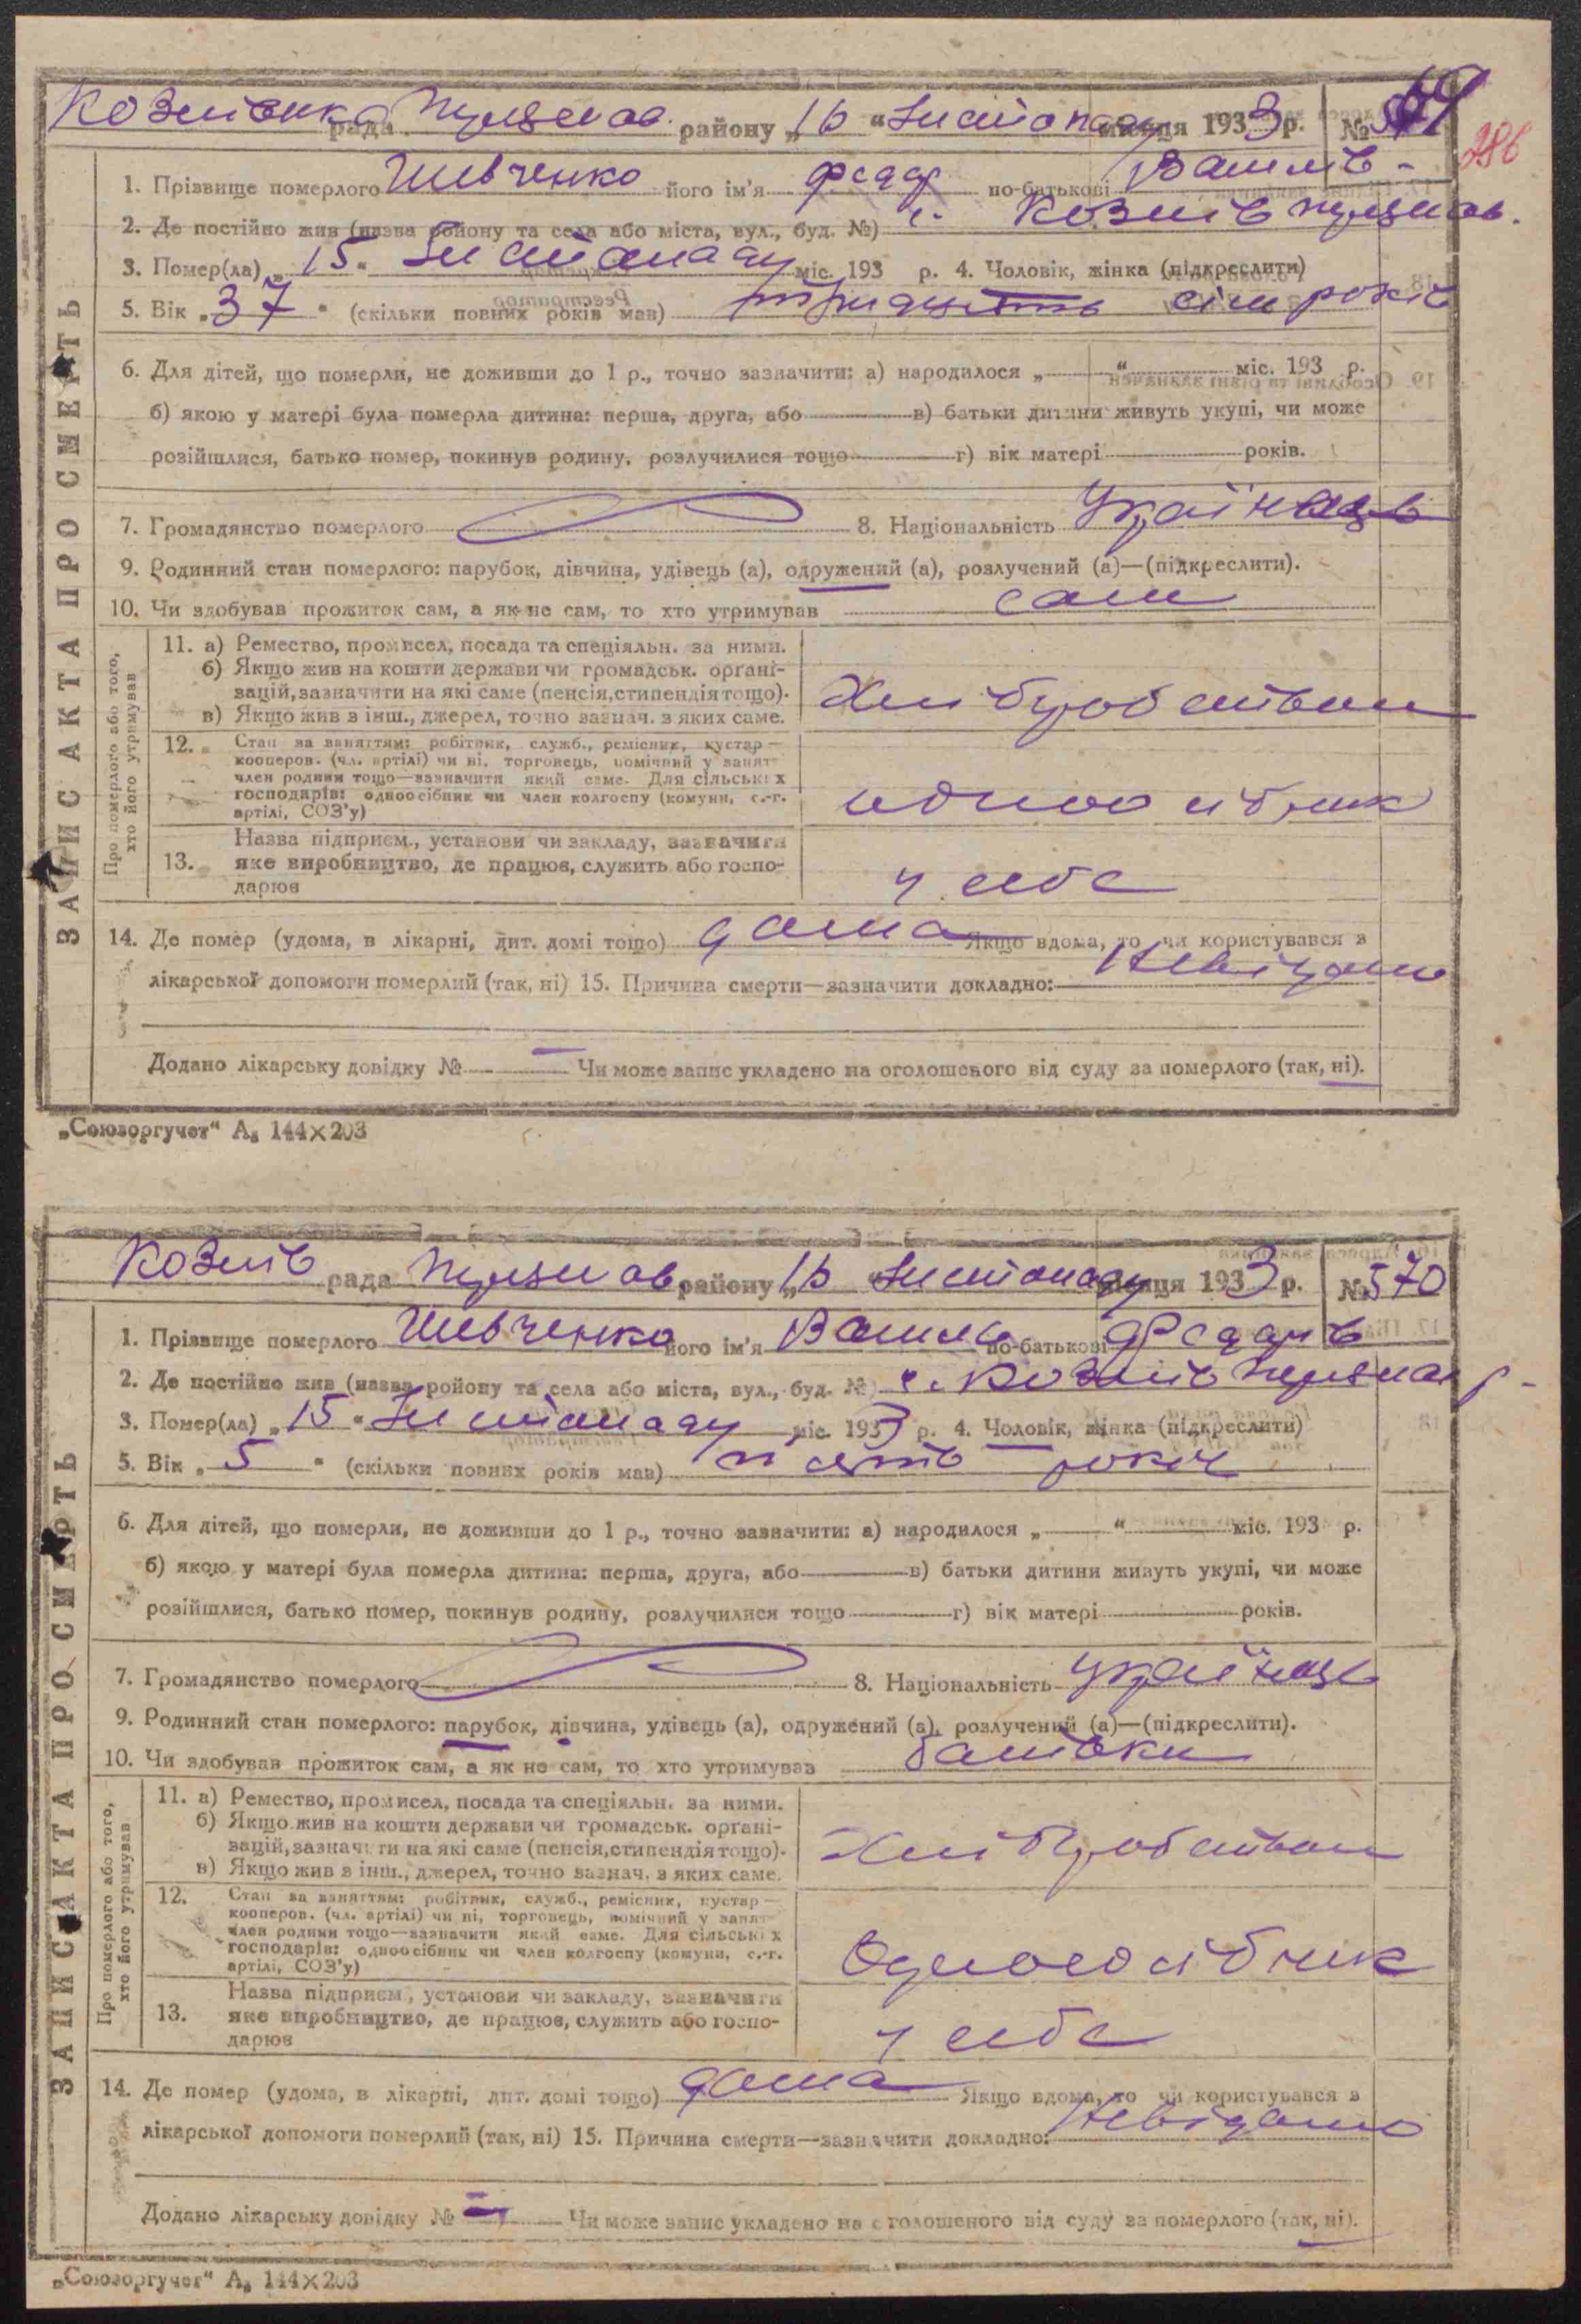 рада району „16 “ Листопаду місяця 1933 р. №
286
1. Прізвище померлого Шевченко його ім'я Федар по-батькові Васильов
2. Де постійно жив (назва району та села або міста, вул., буд. №) с.
3. Помер(ла) „15“ Листопаду міс. 193 р. 4. Чоловік, жінка (підкреслити)
5. Вік „37“ (скільки повних років мав) тридцять сім років
6. Для дітей, що померли, не доживши до 1 р., точно зазначити: а) народилося „ “ міс. 193 р.
б) якою у матері була померла дитина: перша, друга, або в) батьки дитини живуть укупі, чи може
розійшлися, батько помер, покинув родину, розлучилися тощо г) вік матері років.
7. Громадянство померлого 8. Національність Українець
9. Родинний стан померлого: парубок, дівчина, удівець (а), одружений (а), розлучений (а)—(підкреслити).
10. Чи здобував прожиток сам, а як не сам, то хто утримував сам
ЗАПИС АКТА ПРО СМЕРТЬ
Про померлого або того,
хто його утримував
11. а) Ремество, промисел, посада та спеціяльн. за ними.
б) Якщо жив на кошти держави чи громадськ. органі-
зацій, зазначити на які саме (пенсія, стипендія тощо).
в) Якщо жив з інш., джерел, точно зазнач. з яких саме.
Хлібуробством
12. Стан за заняттям: робітник, служб., ремісник, кустар —
кооперов. (чл. артілі) чи ні, торговець, помічний у занят-
член родини тощо—зазначити який саме. Для сільських
господарів: одноосібник чи член колгоспу (комуни, с.-г.
артілі, СОЗ'у)
одноосібник
Назва підприєм., установи чи закладу, зазначити
13. яке виробництво, де працює, служить або госпо-
дарює
у себе
14. Де помер (удома, в лікарні, дит. домі тощо) дома Якщо вдома, то чи користувався з
лікарської допомоги померлий (так, ні) 15. Причина смерти—зазначити докладно: Невідомо
Додано лікарську довідку № — Чи може запис укладено на оголошеного від суду за померлого (так, ні).
„Союзоргучет“ А₅ 144×203
Козлів рада району „16 “ Листопаду місяця 1933 р. №570
1. Прізвище померлого Шевченко його ім'я Василь по-батькові Федарів
2. Де постійно жив (назва району та села або міста, вул., буд. №) с. Козлів
3. Помер(ла) „15“ Листопаду міс. 1933 р. 4. Чоловік, жінка (підкреслити)
5. Вік „5“ (скільки повних років мав) п'ять років
6. Для дітей, що померли, не доживши до 1 р., точно зазначити: а) народилося „ “ міс. 193 р.
б) якою у матері була померла дитина: перша, друга, або в) батьки дитини живуть укупі, чи може
розійшлися, батько помер, покинув родину, розлучилися тощо г) вік матері років.
7. Громадянство померлого 8. Національність українець
9. Родинний стан померлого: парубок, дівчина, удівець (а), одружений (а), розлучений (а)—(підкреслити).
10. Чи здобував прожиток сам, а як не сам, то хто утримував батьки
ЗАПИС АКТА ПРО СМЕРТЬ
Про померлого або того,
хто його утримував
11. а) Ремество, промисел, посада та спеціяльн. за ними.
б) Якщо жив на кошти держави чи громадськ. органі-
зацій, зазначити на які саме (пенсія, стипендія тощо).
в) Якщо жив з інш., джерел, точно зазнач. з яких саме.
Хлібуробством
12. Стан за заняттям: робітник, служб., ремісник, кустар —
кооперов. (чл. артілі) чи ні, торговець, помічний у занят-
член родини тощо—зазначити який саме. Для сільських
господарів: одноосібник чи член колгоспу (комуни, с.-г.
артілі, СОЗ'у)
Одноосібник
Назва підприєм., установи чи закладу, зазначити
13. яке виробництво, де працює, служить або госпо-
дарює
у себе
14. Де помер (удома, в лікарні, дит. домі тощо) дома Якщо вдома, то чи користувався з
лікарської допомоги померлий (так, ні) 15. Причина смерти—зазначити докладно: Невідомо
Додано лікарську довідку № — Чи може запис укладено на оголошеного від суду за померлого (так, ні).
„Союзоргучет“ А₅ 144×203